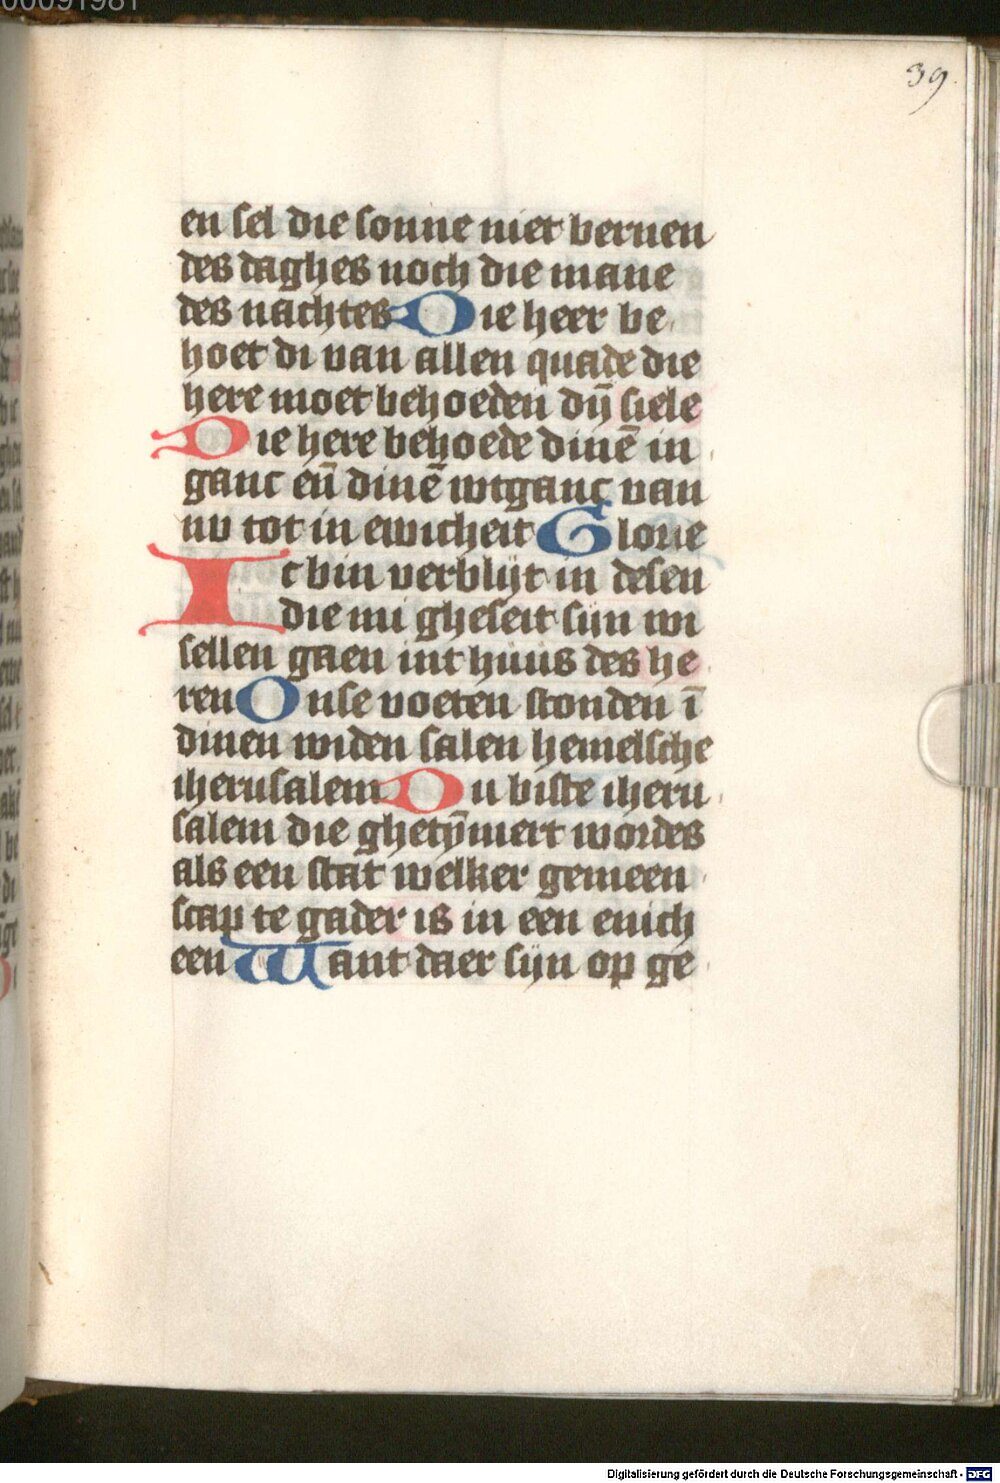 00091981
39
en sel die sonne niet bernen
des daghes noch die mane
des nachtes Die heer be
hoet di van allen quade die
here moet behoeden dȳ siele
Die here behoede dinē in
ganc eñ dinē wtganc van
nv tot in ewicheit Glorie
Ic bin verblijt in desen
die mi gheseit sijn wi
sellen gaen int huus des he
ren Onse voeten stonden ī
dinen widen salen hemelsche
iherusalem Du biste iheru
salem die ghetȳmert wordes
als een stat welker gemeen
scap te gader is in een enich
een Want daer sijn op ge
Digitalisierung gefördert durch die Deutsche Forschungsgemeinschaft - DFG